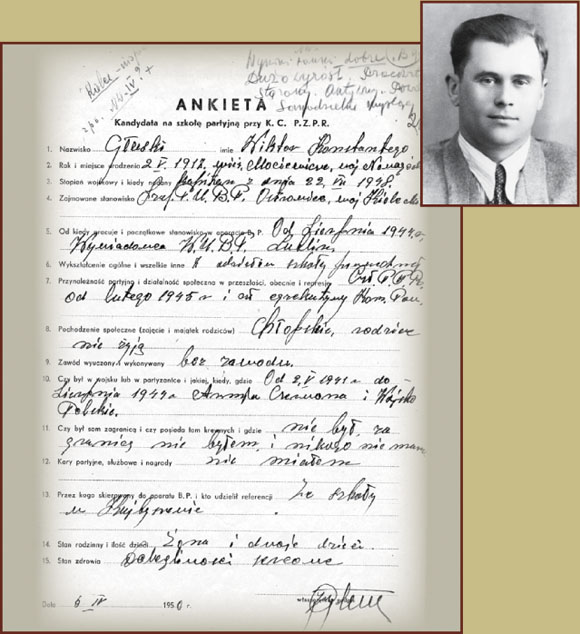 Wynik: dobre.
Dużo
ANKIETA
Kandydata na szkołę partyjną przy K. C. P. Z. P. R.
1. Nazwisko Głuski imię Wiktor Konstantego
2. Rok i miejsce urodzenia 2 V 1912, woj.
3. Stopień wojskowy i kiedy Kapitan z dnia 22. VII 1948.
4. Zajmowane stanowisko Szef P. U. B. P. Ostrowiec, woj Kielecki
5. Od kiedy pracuje i początkowe stanowisko w aparacie B. P. Od Sierpnia 1944 r
Wywiadowca W. U. B. P. Lublin
6. Wykształcenie ogólne i wszelkie inne oddziałów szkoły
7. Przynależność partyjna i działalność społeczna w przeszłości, obecnie i represje
od lutego 1945 r i czł egzekutywy Kom. Pow.
8. Pochodzenie społeczne (zajęcie i majątek rodziców) Chłopskie, rodzice
nie żyją
9. Zawód wyuczony i wykonywany bez zawodu.
10. Czy był w wojsku lub w partyzantce i jakiej, kiedy, gdzie Od 2, V 1941 r do
Sierpnia 1944 r Armja Czerwona i Wojsko
Polskie.
11. Czy był sam zagranicą i czy posiada tam krewnych i gdzie nie był, za
granicą nie byłem, i nikogo nie mam
12. Kary partyjne, służbowe i nagrody nie miałem
13. Przez kogo skierowany do aparatu B. P. i kto udzielił referencji Ze szkoły
w Kujbyszewie
14. Stan rodzinny i ilość dzieci Żona i dwoje dzieci.
15. Stan zdrowia Dolegliwości serca
Data 6 IV 1950 r.